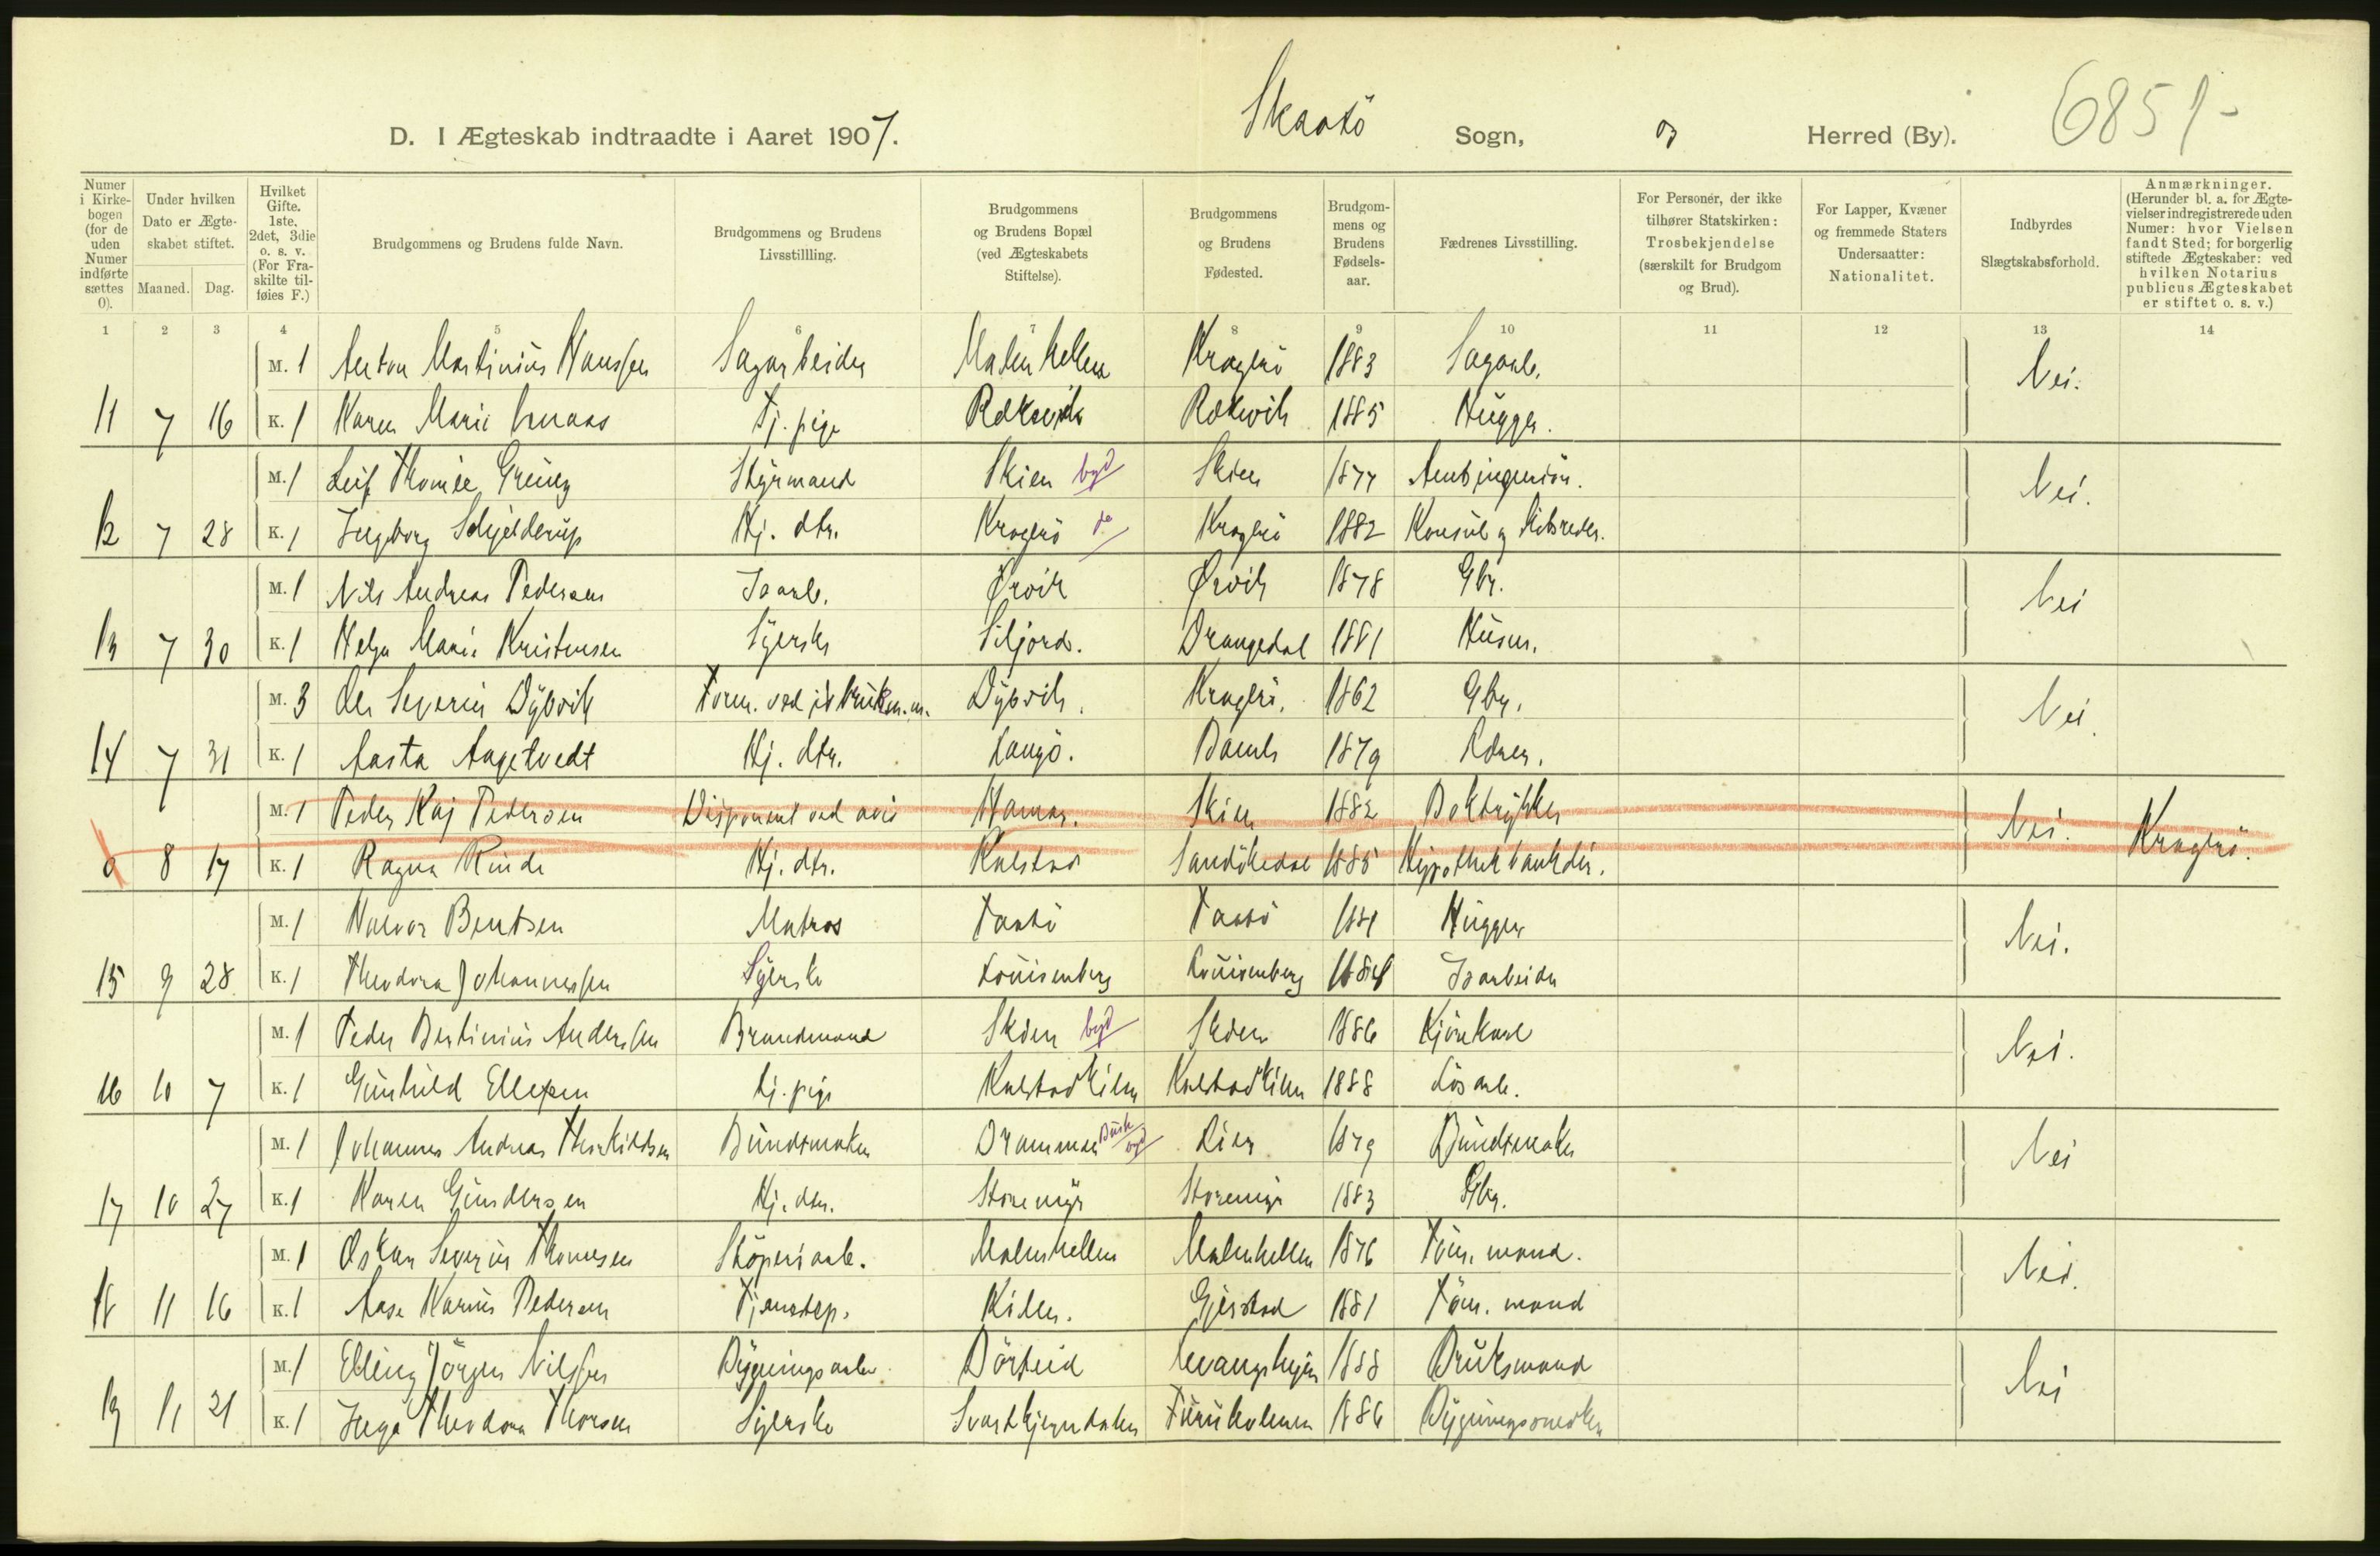 Skaatö
6851-
D. I Ægteskab indtraadte i Aaret 1907. Sogn, og Herred (By).
Numer i Kirkebogen (for de uden Numer indførte sættes 0).
Under hvilken Dato er Ægteskabet stiftet.
Maaned. Dag.
Hvilket Gifte. 1ste, 2det, 3die o. s. v. (For Fraskilte tilføies F.)
Brudgommens og Brudens fulde Navn.
Brudgommens og Brudens Livsstillling.
Brudgommens og Brudens Bopæl (ved Ægteskabets Stiftelse).
Brudgommens og Brudens Fødested.
Brudgommens og Brudens Fødselsaar.
Fædrenes Livsstilling.
For Personer, der ikke tilhører Statskirken: Trosbekjendelse (særskilt for Brudgom og Brud).
For Lapper, Kvæner og fremmede Staters Undersaatter: Nationalitet.
Indbyrdes Slægtskabsforhold.
Anmærkninger. (Herunder bl. a. for Ægtevielser indregistrerede uden Numer: hvor Vielsen fandt Sted; for borgerlig stiftede Ægteskaber: ved hvilken Notarius publicus Ægteskabet er stiftet o. s. v.)
1 2 3 4 5 6 7 8 9 10 11 12 13 14
M. 1 Anton Martinius Hanssen Sagarbeider Malmhellen Kragerö 1883 Sagarb. Nei.
11 7 16 K. 1 Karen Marie Tj. pige Rökevik Rökevik 1885 Hugger.
M. 1 Leif Thomée Grüng Styrmand Skien byd Skien 1877 Amtsingeniör. Nei.
12 7 28 K. 1 Ingeborg Schjelderup Hj. dtr. Kragerö do Kragerö 1882 Konsul og Skibsreder.
M. 1 Nils Andreas Pedersen Isarb. Ørvik Ørvik 1878 Gbr. Nei
13 7 30 K. 1 Helga Marie Kristensen Syerske Siljord. Drangedal 1881 Husm.
M. 3 Ole Severin Dybvik Form. ved m. m. Dybvik. Kragerö. 1862 Gbr. Nei.
14 7 31 K. 1 Aasta Aagetvedt Hj. dtr. Langö. Bamle 1879
M. 1 Peder Kaj Pedersen Disponent ved avis Hamar. Skien 1882 Boktrykker Nei. Kragerö.
0 8 17 K. 1 Ragna Rinde Hj. dtr. Kalstad Sandökedal 1885 Hypothekbankdir.
M. 1 Halvor Bentsen Matros Taatö Taatö 1881 Hugger Nei.
15 9 28 K. 1 Theodora Johannessen Syerske Louisenberg Louisenberg 1884 Isarbeider
M. 1 Peder Bertinius Anderssen Brandmand Skien byd Skien 1886 Kjörekarl Nei.
16 10 7 K. 1 Gunhild Ellefsen tj. pige Kalstadkilen Kalstadkilen 1888 Lösarb.
M. 1 Johannes Andreas Thorkildsen Bundtmaker Drammen Busk byd Lier 1879 Bundtmaker Nei
17 10 27 K. 1 Karen Gundersen Hj. dtr. Storemyr Storemyr 1883 Gbr.
M. 1 Oskar Severin Thomesen Stöperiarb. Malmhellen Malmhellen 1876 Töm. mand. Nei.
18 11 16 K. 1 Aase Karine Pedersen Tjenestep. Kilen. Gjerstad 1881 Töm. mand
M. 1 Elling Jörgen Nilssen Bygningsarb. Dörheid 1888 Bruksmand Nei
19 11 21 K. 1 Inga Theodora Thorsen Syerske Svartkjerndalen Furuholmen 1886 Bygningssnedker